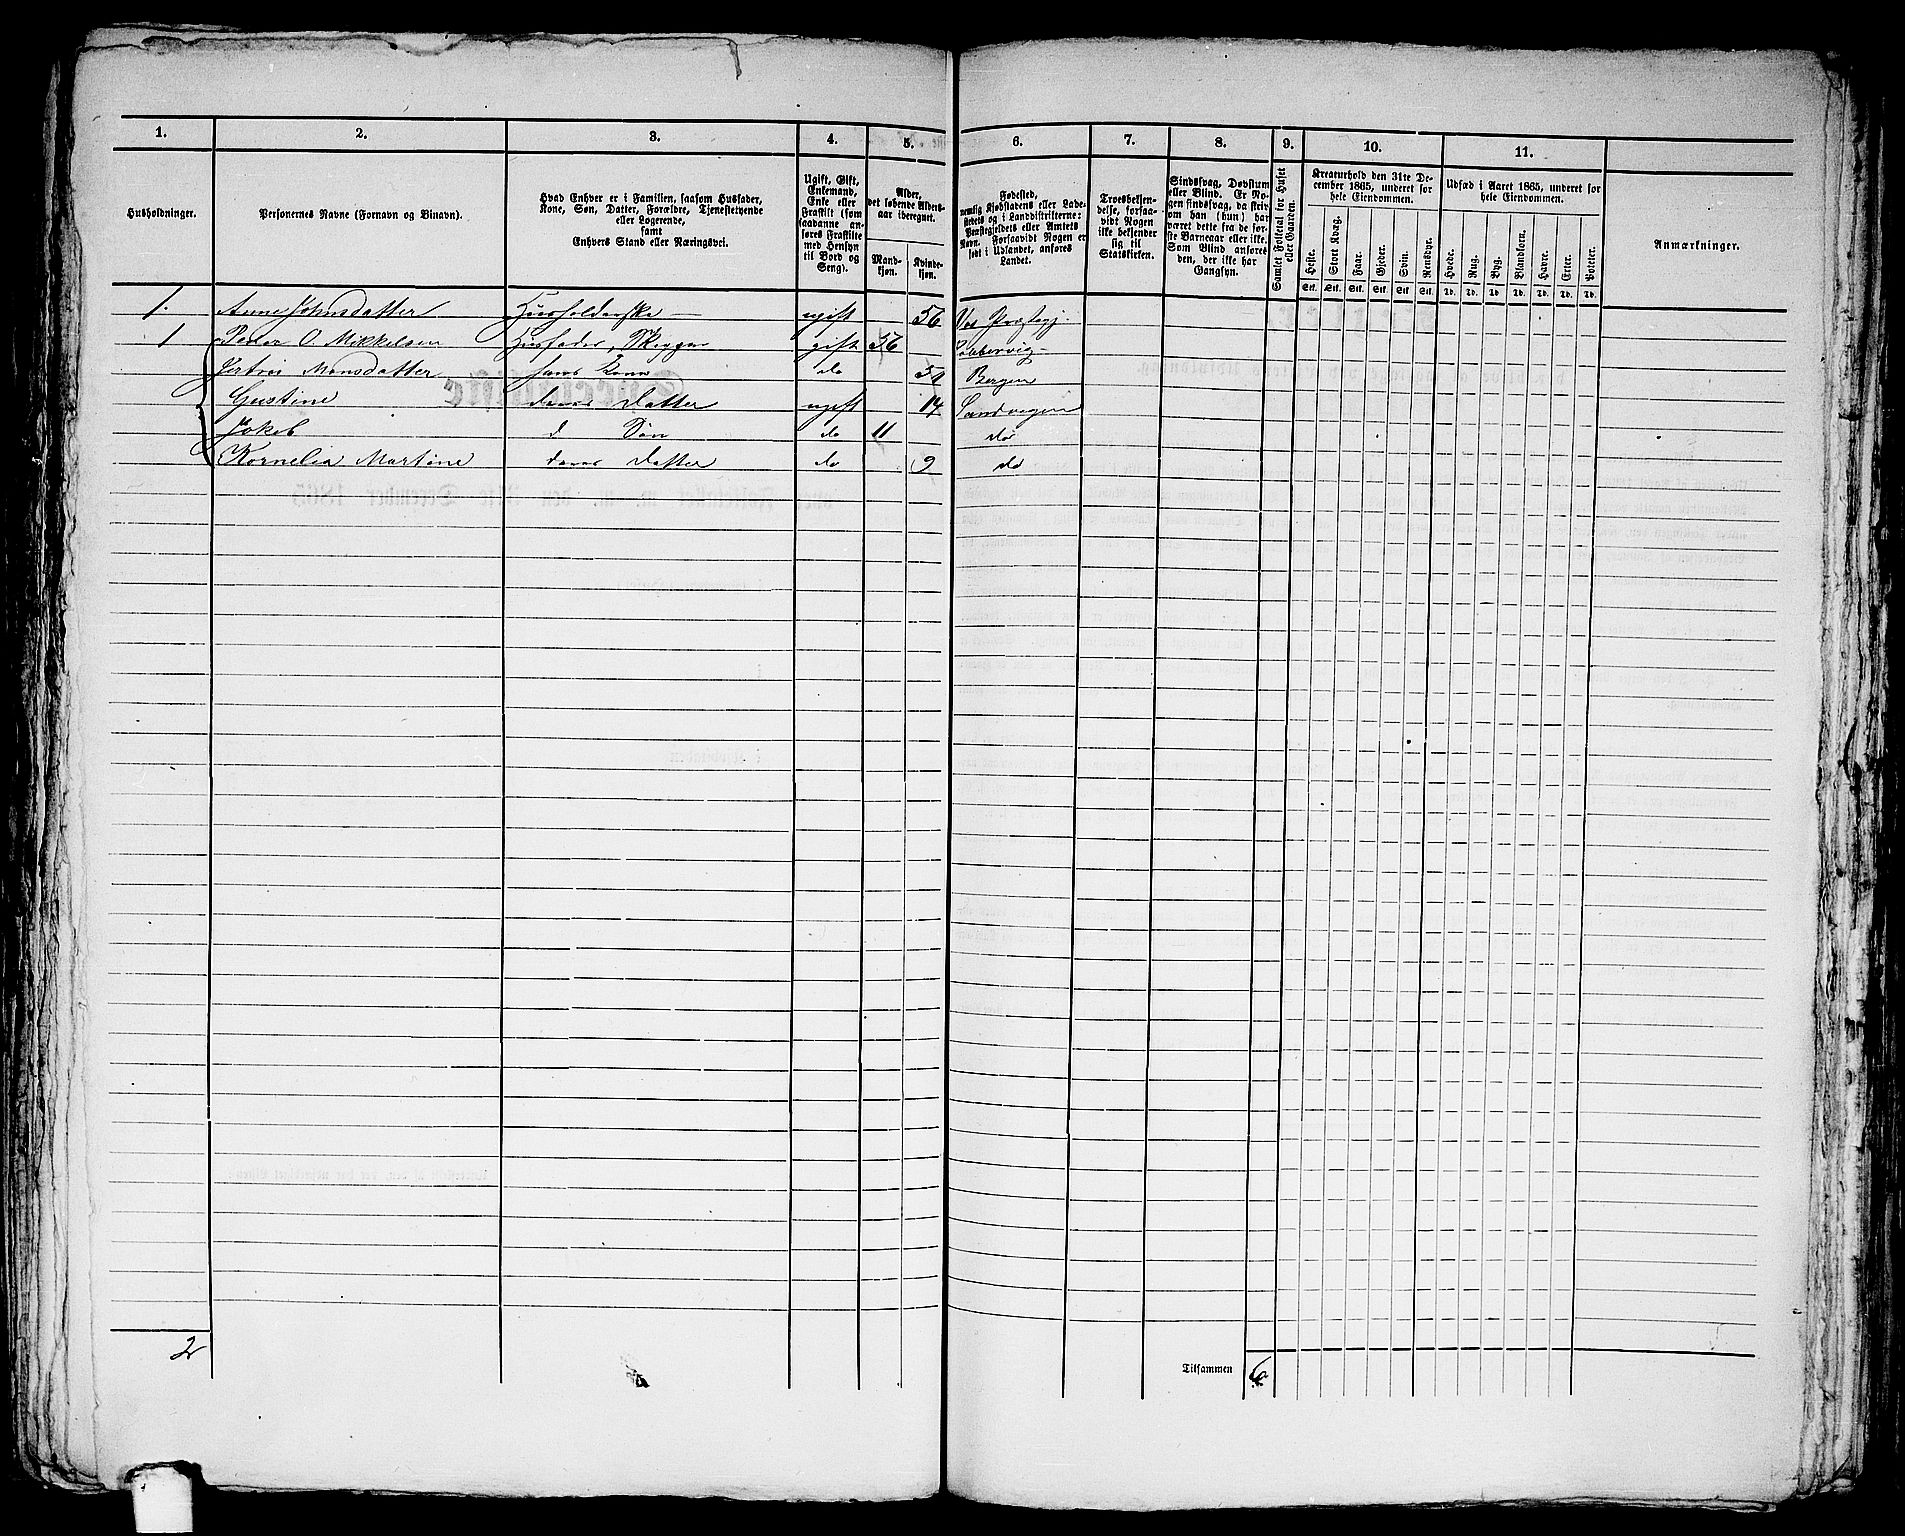 1. 2. 3. 4. 5. 6. 7. 8. 9. 10. 11.
Husholdninger.
Personernes Navne (Fornavn og Binavn).
Hvad Enhver er i Familien, saasom Husfader,
Kone, Søn, Datter, Forældre, Tjenestetyende
eller Logerende,
samt
Enhvers Stand eller Næringsvei.
Ugift, Gift,
Enkemand,
Enke eller
Fraskilt (som
saadanne an-
føres Fraskilte
med Hensyn
til Bord og
Seng).
Alder,
det løbende Alders-
aar iberegnet.
Mand-
kjøn.
Kvinde-
kjøn.
Fødested,
nemlig Kjøbstadens eller Lade-
stedets og i Landdistrikterne:
Præstegjeldets eller Amtets
Navn. Forsaavidt Nogen er
født i Udlandet, anføres
Landet.
Troesbekjen-
delse, forsaa-
vidt Nogen
ikke bekjender
sig til
Statskirken.
Sindssvag, Døvstum
eller Blind. Er No-
gen sindssvag, da skriv
om han (hun) har
været dette fra de før-
ste Barneaar eller ikke.
Som Blind anføres
den, der ikke har
Gangsyn.
Samlet Folketal for Huset
eller Gaarden.
Kreaturhold den 31te De-
cember 1865, underet for
hele Eiendommen.
Heste. Stort Kvæg. Faar. Gjeder. Svin. Rensdyr.
Stk. Stk. Stk. Stk. Stk. Stk.
Udsæd i Aaret 1865, underet for
hele Eiendommen.
Hvede. Rug. Byg. Blandkorn. Havre. Erter. Poteter.
Td. Td. Td. Td. Td. Td. Td.
Anmærkninger.
1. Anne Johnsdatter Huusholderske ugift 56 Vos Præstegj.
1 Peder O. Mikkelsen Husfader, gift 56
Monsdatter hans Kone do Bergen
Gustine deres Datter ugift 14 Sandvigen
Jakob d Søn do 11 do
Kornelia Martine deres Datter do 9 do
2 Tilsammen 6